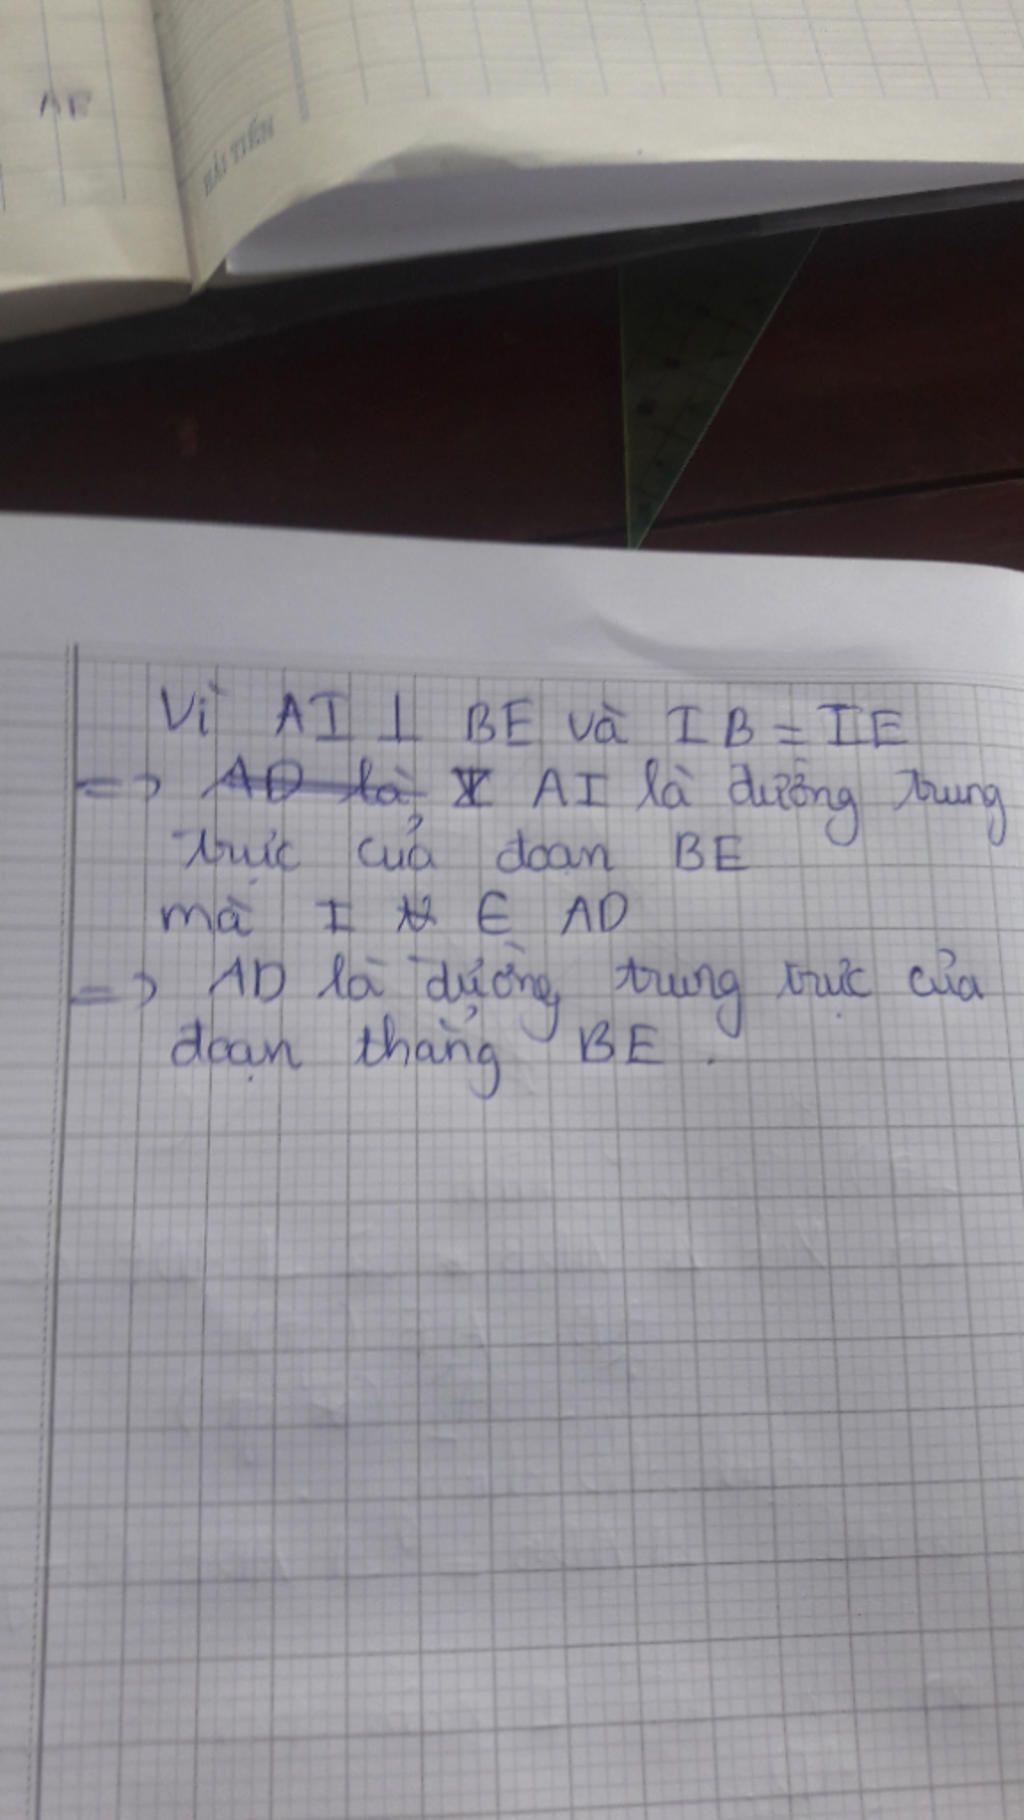 AB
HẢI TIẾN
Vì AI ⊥ BE và IB = IE
=> AD là AI là đường trung
trực của đoạn BE
mà I ∈ AD
=> AD là đường trung trực của
đoạn thẳng BE.